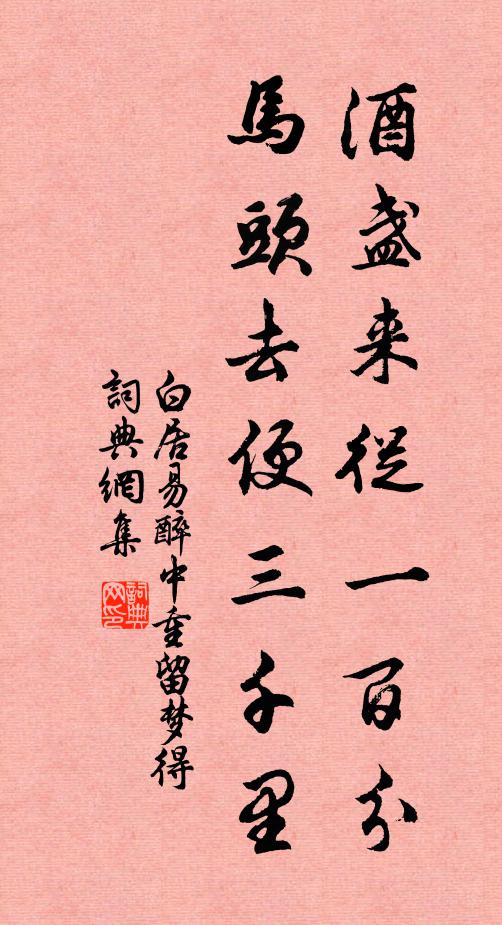 酒盏来從一百分
馬頭去便三千里
白居易醉中重留梦得
詞典網集
詞典网印